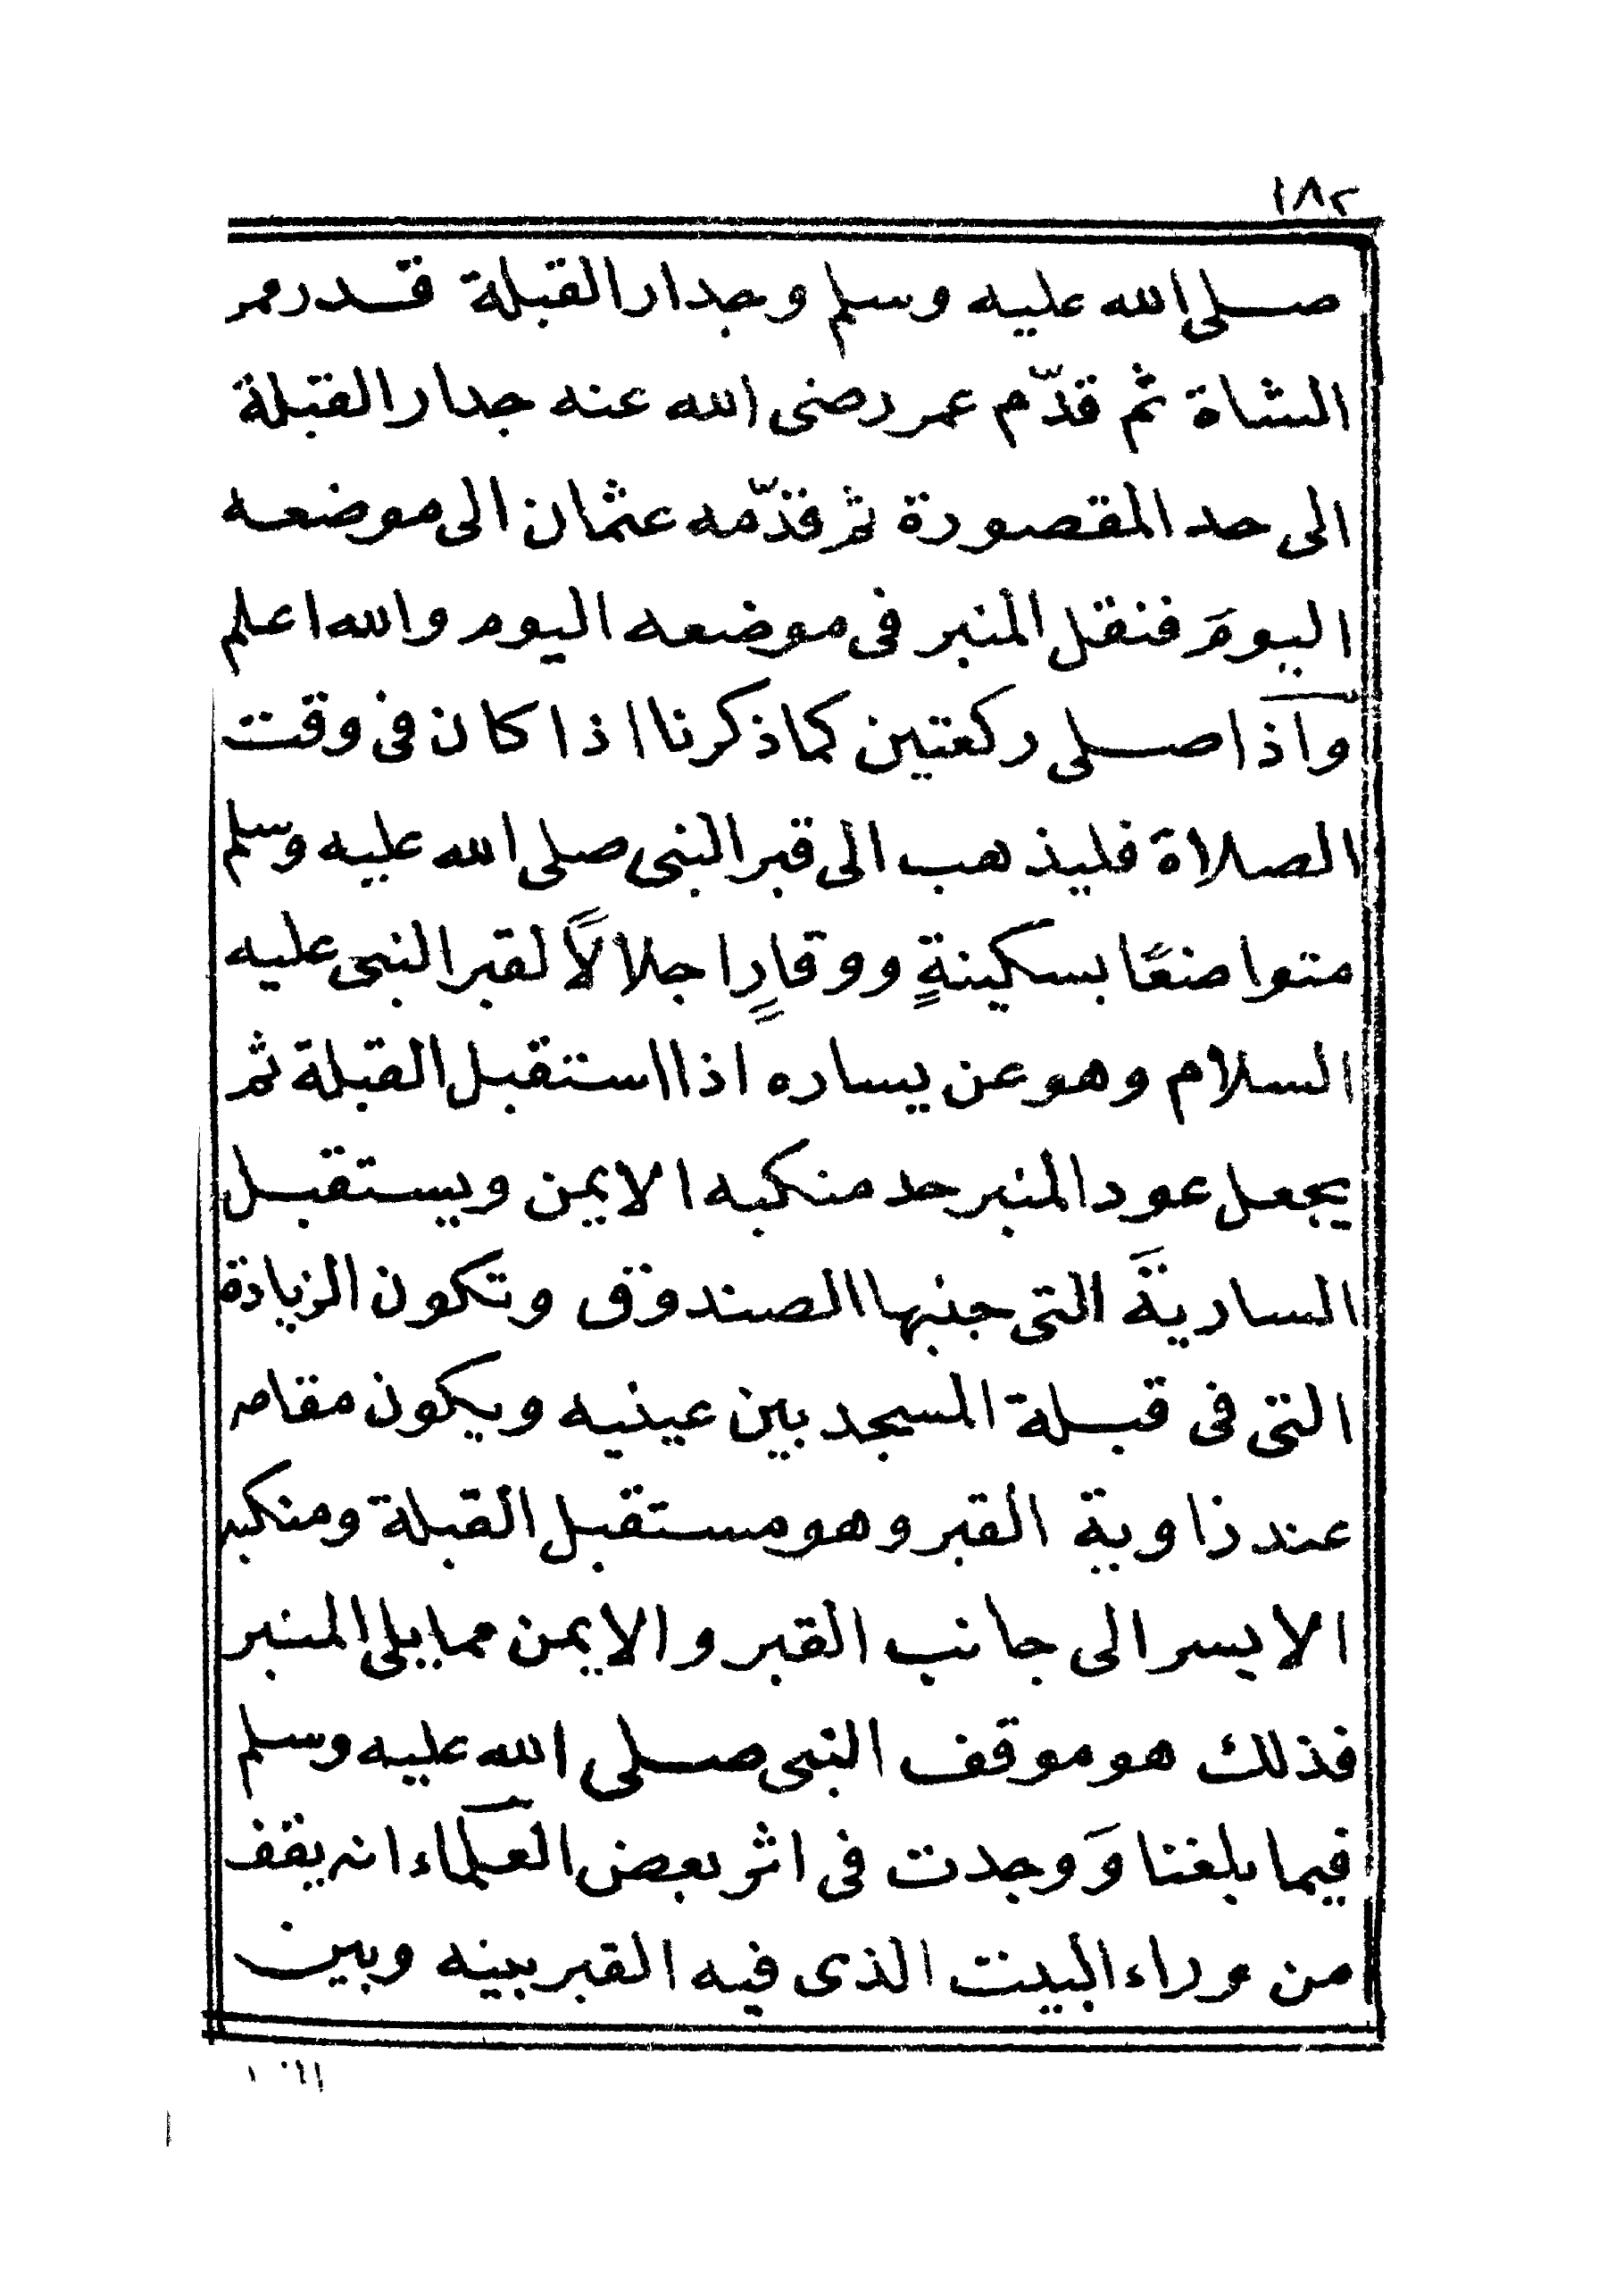 ١٨٢
صلى الله عليه وسلم وجدار القبلة قدر ممر
الشاة ثم قدّم عمر رضى الله عنه جدار القبلة
الى حد المقصورة ثم قدّمه عثمان الى موضعه
اليومَ فنقل المنبر فى موضعه اليوم والله اعلم
واذا صلى ركعتين كما ذكرنا اذا كان فى وقت
الصلاة فليذهب الى قبر النبى صلى الله عليه وسلم
متواضعًا بسكينةٍ ووقارٍ اجلالاً لقبر النبى عليه
السلام وهو عن يساره اذا استقبل القبلة ثم
يجعل عود المنبر حد منكبه الايمن ويستقبل
الساريةَ التى جنبها الصندوق وتكون الزيادة
التى فى قبلة المسجد بين عينيه ويكون مقامه
عند زاوية القبر وهو مستقبل القبلة ومنكبه
الايسر الى جانب القبر والايمن مما يلى المنبر
فذلك هو موقف النبى صلى الله عليه وسلم
فيما بلغنا وَوجدت فى اثر بعض العلماء انه يقف
من وراء البيت الذى فيه القبر بينه وبين